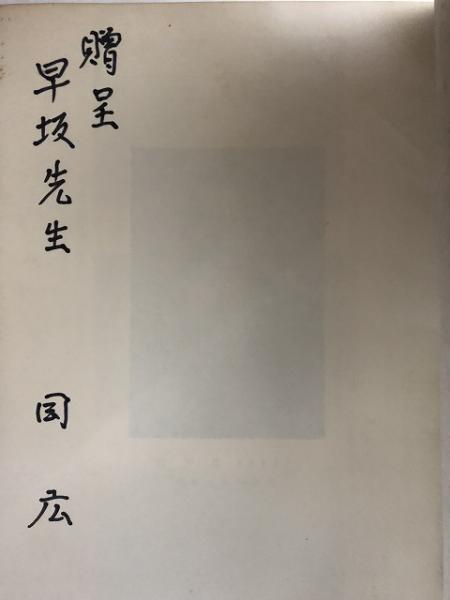 贈呈
早坂先生
国広